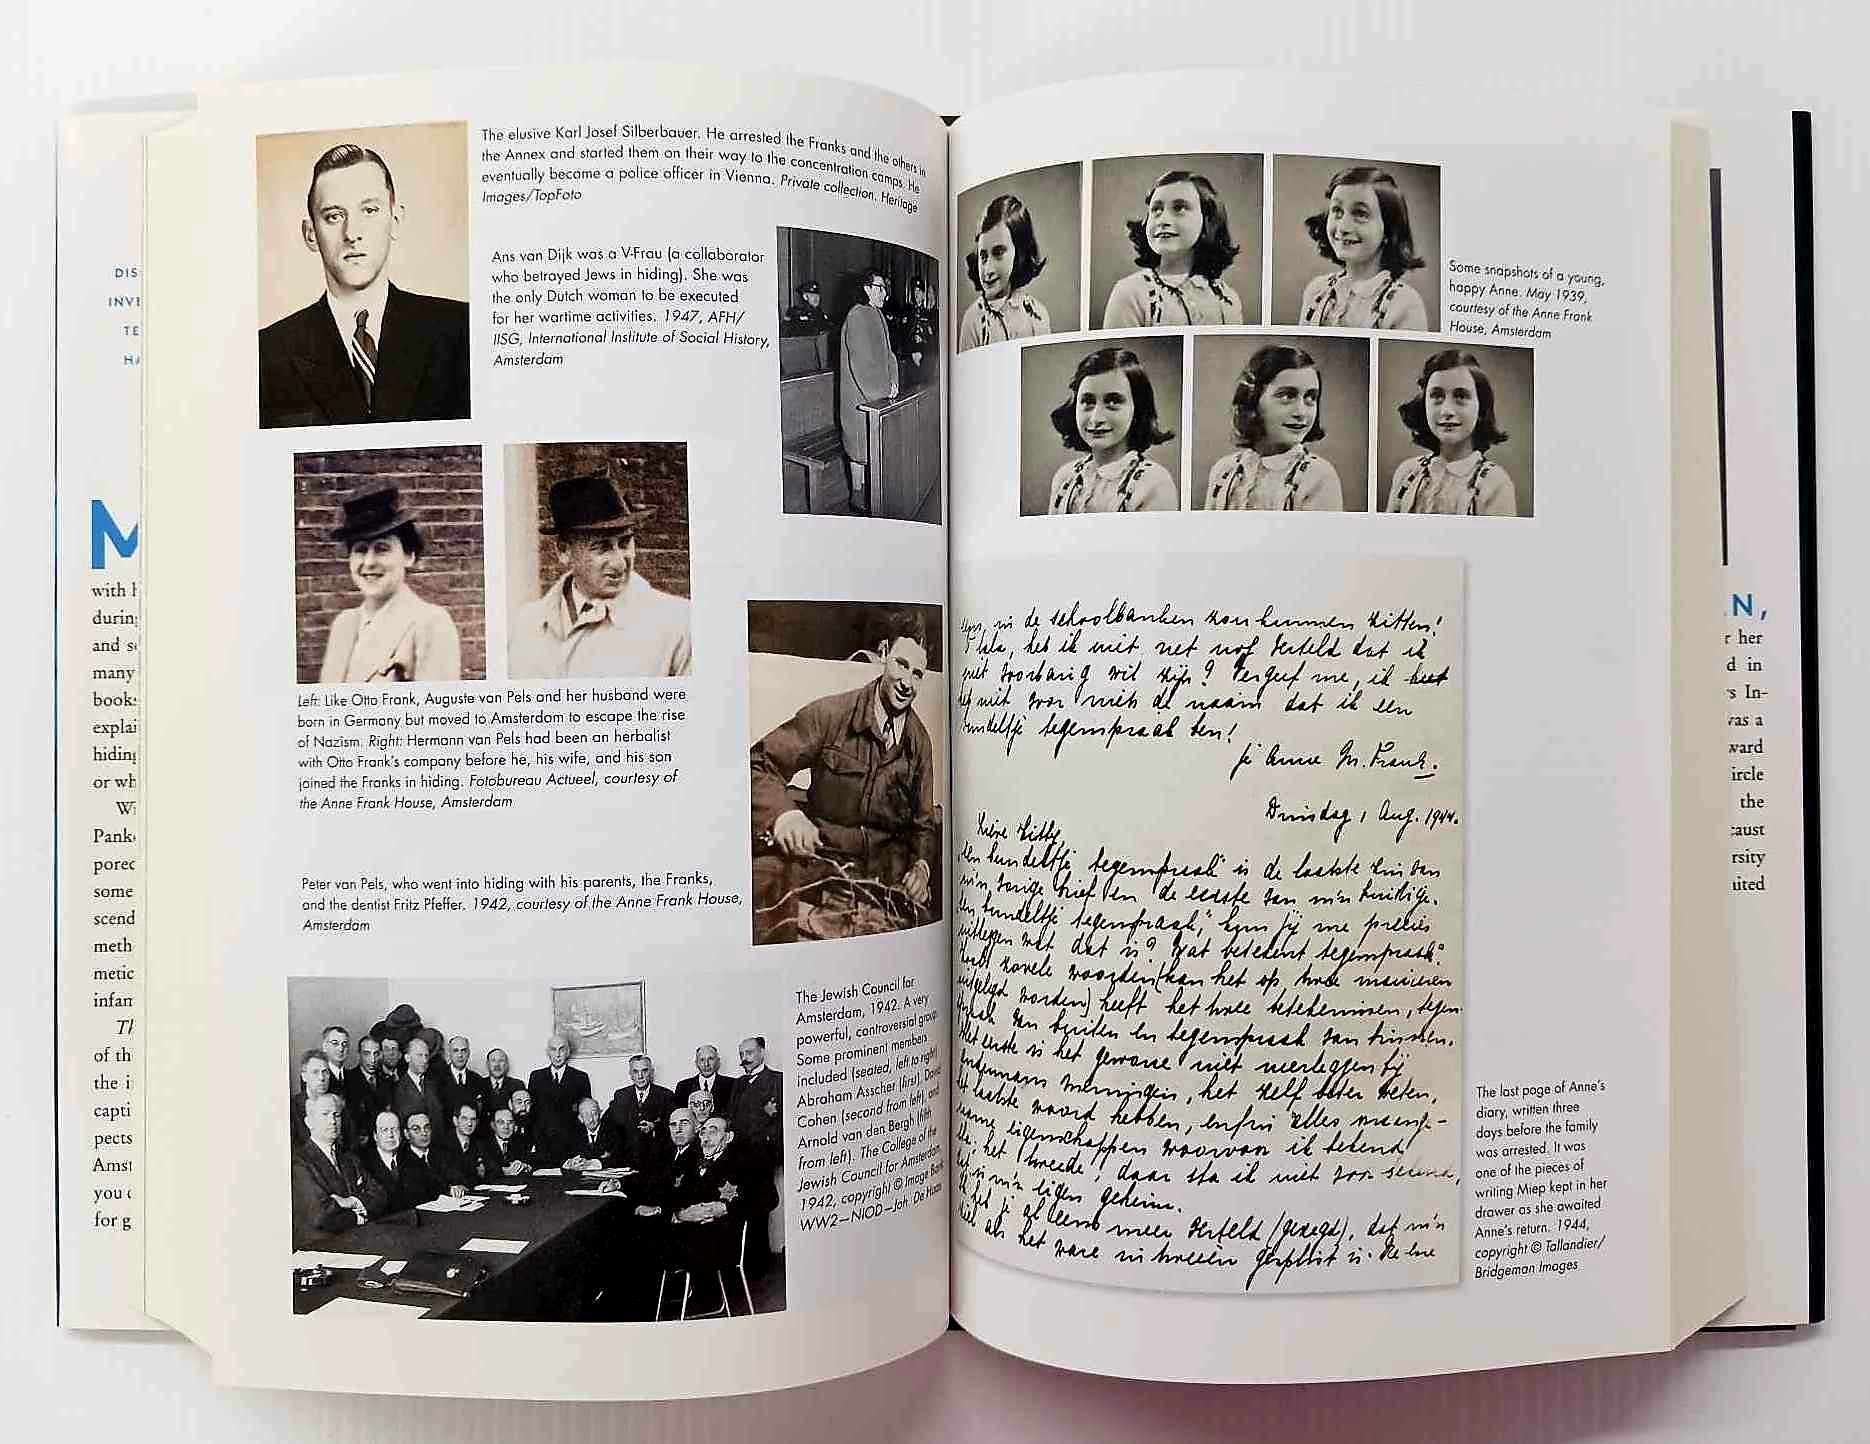 The elusive Karl Josef Silberbauer. He arrested the Franks and the others in
the Annex and started them on their way to the concentration camps. He
eventually became a police officer in Vienna. Private collection. Heritage
Images/TopFoto
Ans van Dijk was a V-Frau (a collaborator
who betrayed Jews in hiding). She was
the only Dutch woman to be executed
for her wartime activities. 1947, AFH/
IISG, International Institute of Social History,
Amsterdam
Left: Like Otto Frank, Auguste van Pels and her husband were
born in Germany but moved to Amsterdam to escape the rise
of Nazism. Right: Hermann van Pels had been an herbalist
with Otto Frank's company before he, his wife, and his son
joined the Franks in hiding. Fotobureau Actueel, courtesy of
the Anne Frank House, Amsterdam
Peter van Pels, who went into hiding with his parents, the Franks,
and the dentist Fritz Pfeffer. 1942, courtesy of the Anne Frank House,
Amsterdam
The Jewish Council for
Amsterdam, 1942. A very
powerful, controversial group.
Some prominent members
included (seated, left to right)
Abraham Asscher (first), David
Cohen (second from left), and
Arnold van den Bergh (fifth
from left). The College of the
Jewish Council for Amsterdam,
1942, copyright © Image Bank
WW2—NIOD—Joh. De Haas
Some snapshots of a young,
happy Anne. May 1939,
courtesy of the Anne Frank
House, Amsterdam
in de schoolbanken zou kunnen zitten!
heb ik niet net nog verteld dat ik
niet voorbarig wil zijn? Vergeef me, ik heet
niet voor niets de naam dat ik een
bundeltje tegenspraak ben!
je Anne M. Frank.
Dinsdag, 1 Aug. 1944.
Lieve Kitty,
bundeltje tegenspraak" is de laatste zin van
m'n vorige brief en de eerste van m'n huidige.
bundeltje tegenspraak", kun jij me precies
uitleggen wat dat is? Wat betekent tegenspraak?
zovele woorden (kan het op twee manieren
uitgelegd worden) heeft het twee betekenissen, tegen-
spraak van buiten en tegenspraak van binnen.
Het eerste is het gewone niet neerleggen bij
andermans meningen, het zelf beter weten,
het laatste woord hebben, enfin alles onange-
name eigenschappen waarvoor ik bekend
het tweede, daar sta ik niet voor bekend,
is m'n eigen geheim.
Ik heb je al eens meer verteld (gezegd), dat m'n
ziel als het ware in tweeën gesplitst is. De ene
The last page of Anne's
diary, written three
days before the family
was arrested. It was
one of the pieces of
writing Miep kept in her
drawer as she awaited
Anne's return. 1944,
copyright © Tallandier/
Bridgeman Images
DIS
INVE
TE
HA
M
with h
during
and s
many
books
explai
hiding
or wh
Wi
Pank
pored
some
scend
meth
metic
infan
Th
of th
the i
capti
pects
Amst
you c
for g
N,
r her
d in
s In-
was a
ward
ircle
the
caust
rsity
nited